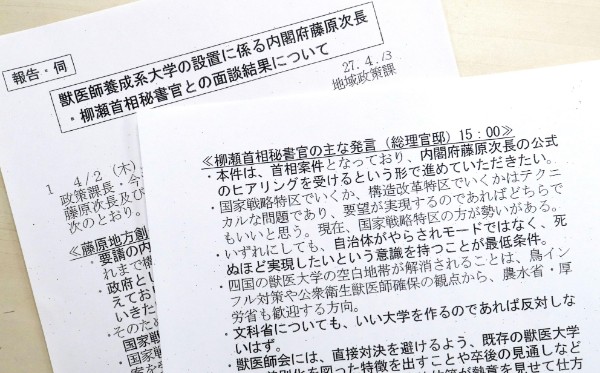 報告・伺
獣医師養成系大学の設置に係る内閣府藤原次長
・柳瀬首相秘書官との面談結果について
27.4./3
地域政策課
1 4/2 (木)
政策課長・今
藤原次長及び
次のとおり。
≪藤原地方創
・要請の内
れまで構
・政府とし
えてお
いきた
そのため
国家戦
・国家戦
≪柳瀬首相秘書官の主な発言(総理官邸)15:00≫
・本件は、首相案件となっており、内閣府藤原次長の公式
のヒアリングを受けるという形で進めていただきたい。
・国家戦略特区でいくか、構造改革特区でいくかはテクニ
カルな問題であり、要望が実現するのであればどちらで
もいいと思う。現在、国家戦略特区の方が勢いがある。
・いずれにしても、自治体がやらされモードではなく、死
ぬほど実現したいという意識を持つことが最低条件。
・四国の獣医大学の空白地帯が解消されることは、鳥イン
フル対策や公衆衛生獣医師確保の観点から、農水省・厚
労省も歓迎する方向。
・文科省についても、いい大学を作るのであれば反対しな
いはず。
・獣医師会には、直接対決を避けるよう、既存の獣医大学
差別化を図った特徴を出すことや卒後の見通しなど
が熱意を見せて仕方